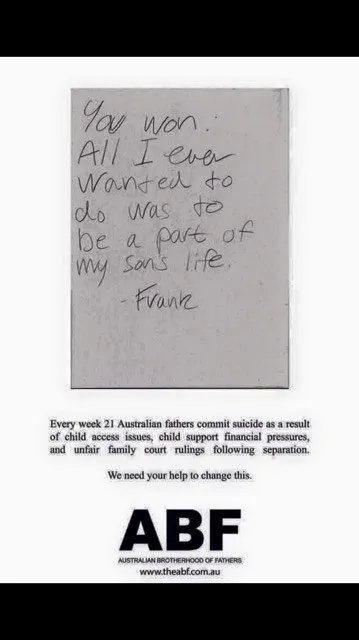 You won.
All I ever
wanted to
do was to
be a part of
my sons life.
- Frank
Every week 21 Australian fathers commit suicide as a result
of child access issues, child support financial pressures,
and unfair family court rulings following separation.
We need your help to change this.
ABF
AUSTRALIAN BROTHERHOOD OF FATHERS
www.theabf.com.au